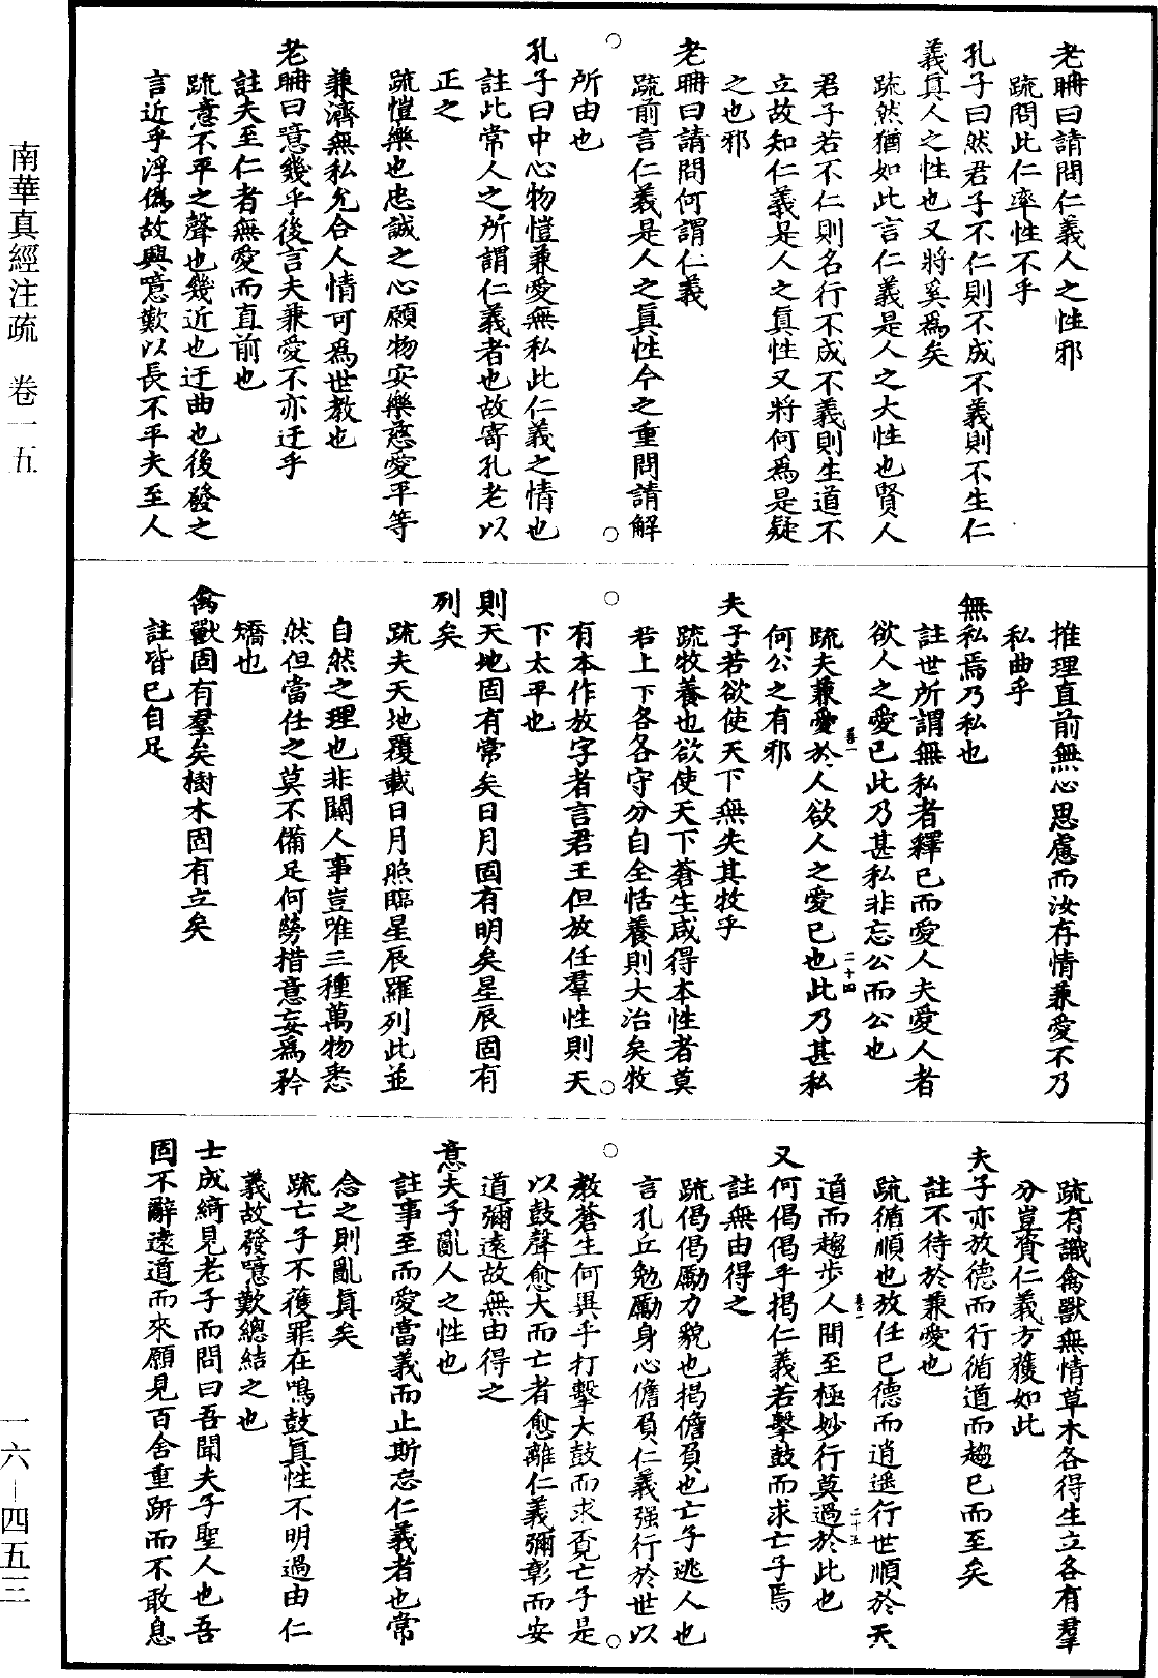 南華真經注疏　卷一五
一六—四五三
老聃曰請問仁義人之性邪
疏問此仁率性不乎
孔子曰然君子不仁則不成不義則不生仁
義真人之性也又將奚為矣
疏然猶如此言仁義是人之大性也賢人
君子若不仁則名行不成不義則生道不
立故知仁義是人之真性又將何為是疑
之也邪
老聃曰請問何謂仁義
疏前言仁義是人之真性今之重問請解
所由也
孔子曰中心物愷兼愛無私此仁義之情也
註此常人之所謂仁義者也故寄孔老以
正之
疏愷樂也忠誠之心願物安樂慈愛平等
兼濟無私允合人情可為世教也
老聃曰噫幾乎後言夫兼愛不亦迂乎
註夫至仁者無愛而直前也
疏意不平之聲也幾近也迂曲也後發之
言近乎浮偽故興噫歎以長不平夫至人
推理直前無心思慮而汝存情兼愛不乃
私曲乎
無私焉乃私也
註世所謂無私者釋己而愛人夫愛人者
欲人之愛己此乃甚私非忘公而公也
疏夫兼愛於人欲人之愛己也此乃甚私
二十四
何公之有邪
夫子若欲使天下無失其牧乎
疏牧養也欲使天下蒼生咸得本性者莫
若上下各各守分自全恬養則大治矣牧
有本作放字者言君王但放任羣性則天
下太平也
則天地固有常矣日月固有明矣星辰固有
列矣
疏夫天地覆載日月照臨星辰羅列此並
自然之理也非關人事豈唯三種萬物悉
然但當任之莫不備足何勞措意妄為矜
矯也
禽獸固有羣矣樹木固有立矣
註皆已自足
疏有識禽獸無情草木各得生立各有羣
分豈資仁義方獲如此
夫子亦放德而行循道而趨已而至矣
註不待於兼愛也
疏循順也放任己德而逍遙行世順於天
道而趨步人間至極妙行莫過於此也
二十五
又何偈偈乎揭仁義若擊鼓而求亡子焉
註無由得之
疏偈偈勵力貌也揭儋負也亡子逃人也
言孔丘勉勵身心儋負仁義强行於世以
教蒼生何異乎打擊大鼓而求覓亡子是
以鼓聲愈大而亡者愈離仁義彌彰而安
道彌遠故無由得之
意夫子亂人之性也
註事至而愛當義而止斯忘仁義者也常
念之則亂真矣
疏亡子不獲罪在鳴鼓真性不明過由仁
義故發噫歎總結之也
士成綺見老子而問曰吾聞夫子聖人也吾
固不辭遠道而來願見百舍重趼而不敢息